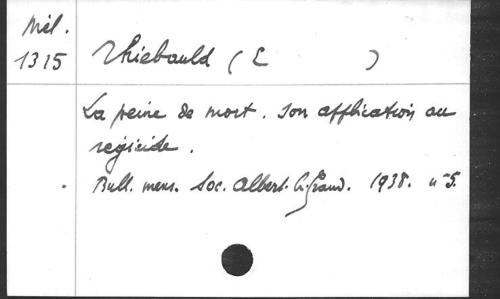 Mél.
1315 Thiebauld (E )
La peine de mort. Son application au
régicide.
Bull. mens. Soc. Albert-le-Grand. 1938. n° 5.